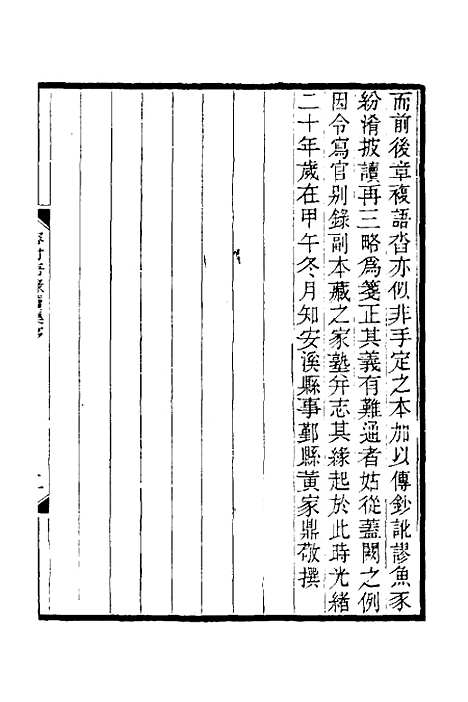 而前後章複語沓亦似非手定之本加以傳鈔訛謬魚豕
紛淆披讀再三略爲箋正其義有難通者姑從蓋闕之例
因令寫官别錄副本藏之家塾幷志其緣起於此時光緒
二十年歲在甲午冬月知安溪縣事鄞縣黃家鼎敬撰